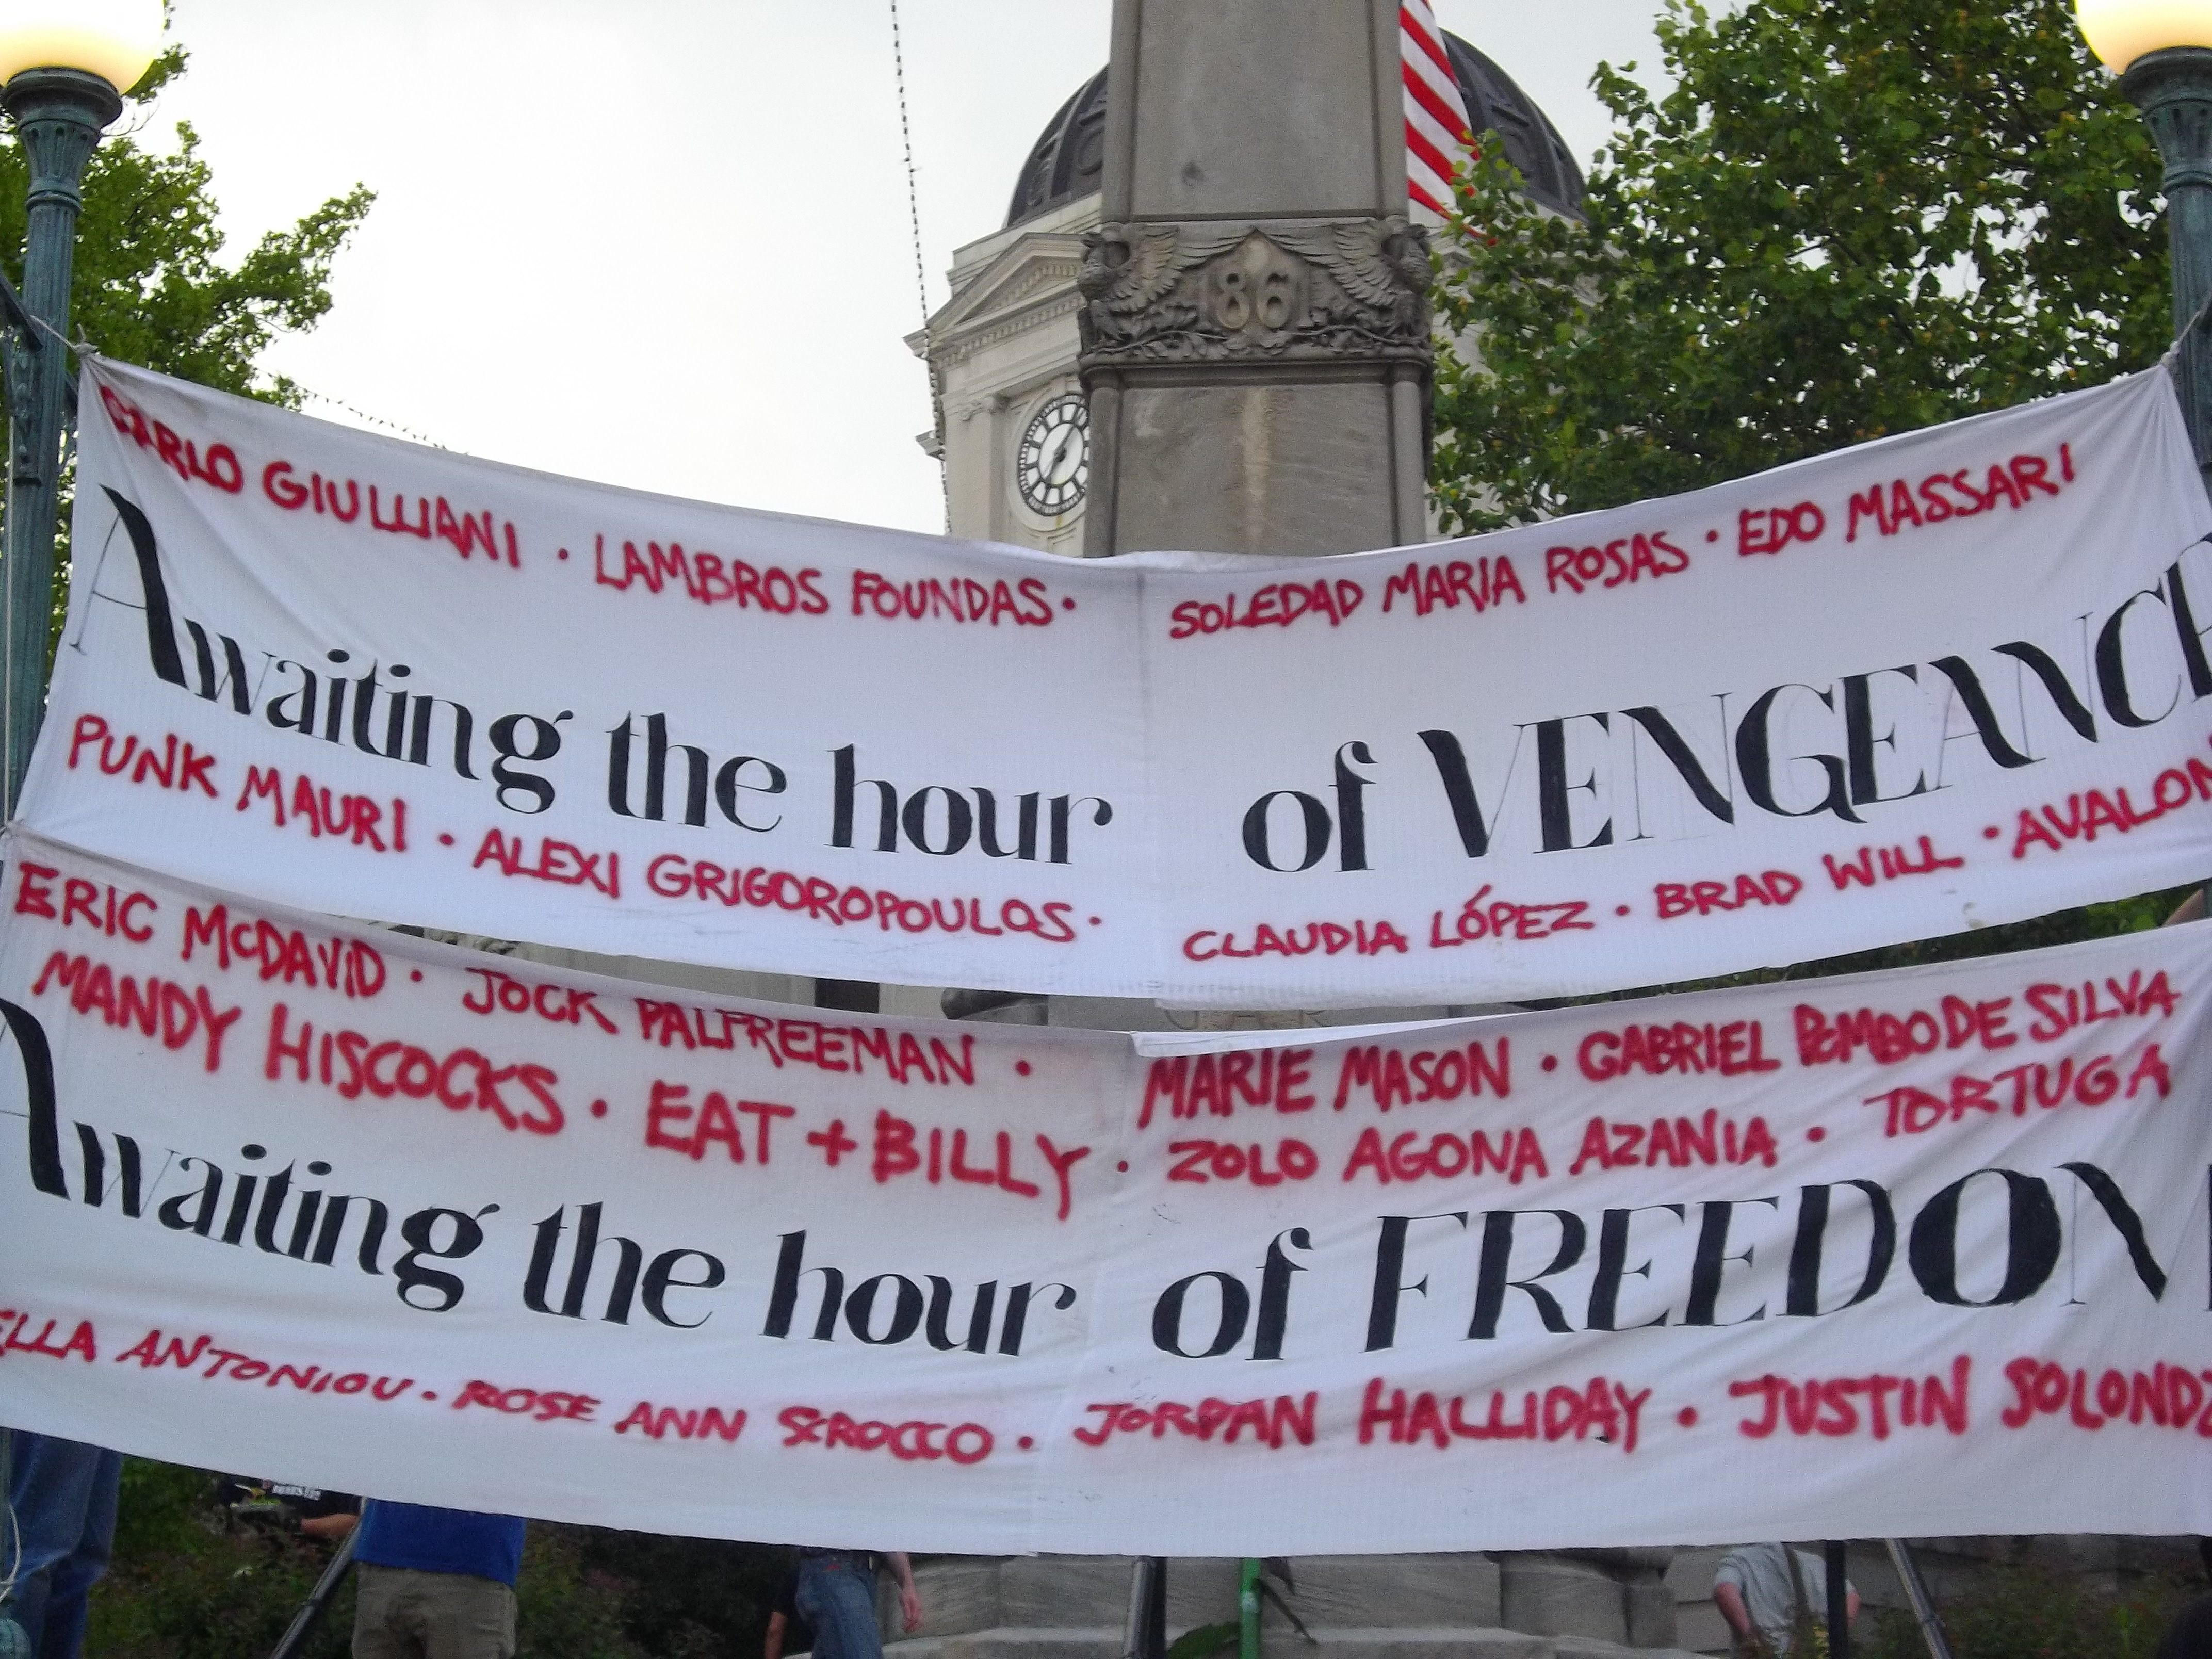 1861
CARLO GIULIANI · LAMBROS FOUNDAS · SOLEDAD MARIA ROSAS · EDO MASSARI
Awaiting the hour of VENGEANCE
PUNK MAURI · ALEXI GRIGOROPOULOS · CLAUDIA LÓPEZ · BRAD WILL · AVALON
ERIC MCDAVID · JOCK PALFREEMAN · MARIE MASON · GABRIEL POMBO DE SILVA
MANDY HISCOCKS · EAT + BILLY · ZOLO AGONA AZANIA · TORTUGA
Awaiting the hour of FREEDOM
ELLA ANTONIOU · ROSE ANN SCROCCO · JORDAN HALLIDAY · JUSTIN SOLONDZ